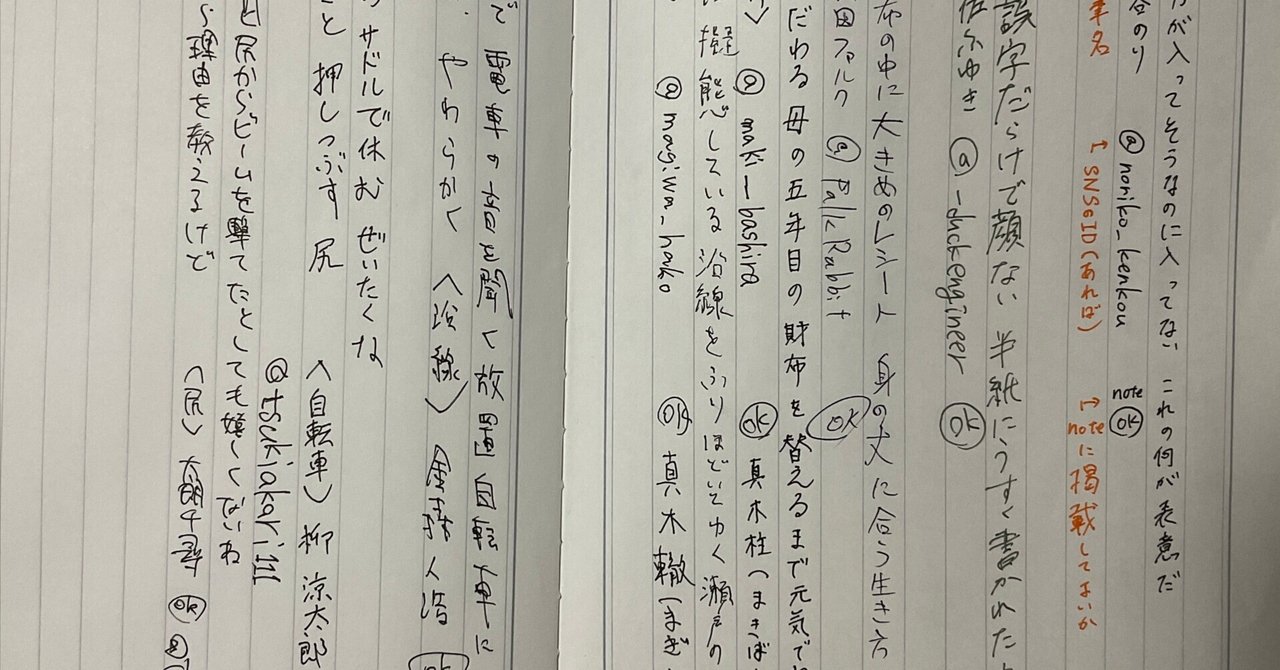 が入ってそうなのに入ってない これの何が表意だ
谷のり @noriko_kenkou note ok
筆名 ↑SNSのID(あれば) ↑noteに掲載してよいか
誤字だらけで顔ない 半紙にうすく書かれた
ふゆき @-duckengineer ok
布の中に大きめのレシート 身の丈に合う生き方
田ファルク @Falk_Rabbit ok
だわる母の五年目の財布を替えるまで元気で
@maki_bashira ok 真木柱(まきば
擬態している沿線をふりほどいてゆく瀬戸の
@magiwa_hako ok 真木轍(まぎ
で電車の音を聞く放置自転車に
やわらかく 〈沿線〉 ok
サドルで休む ぜいたくな
と押しつぶす 尻 〈自転車〉 柳 涼太郎
@tsukiakari111
尻からビームを撃てたとしても嬉しくないね
理由を教えるけど 〈尻〉 千尋 ok